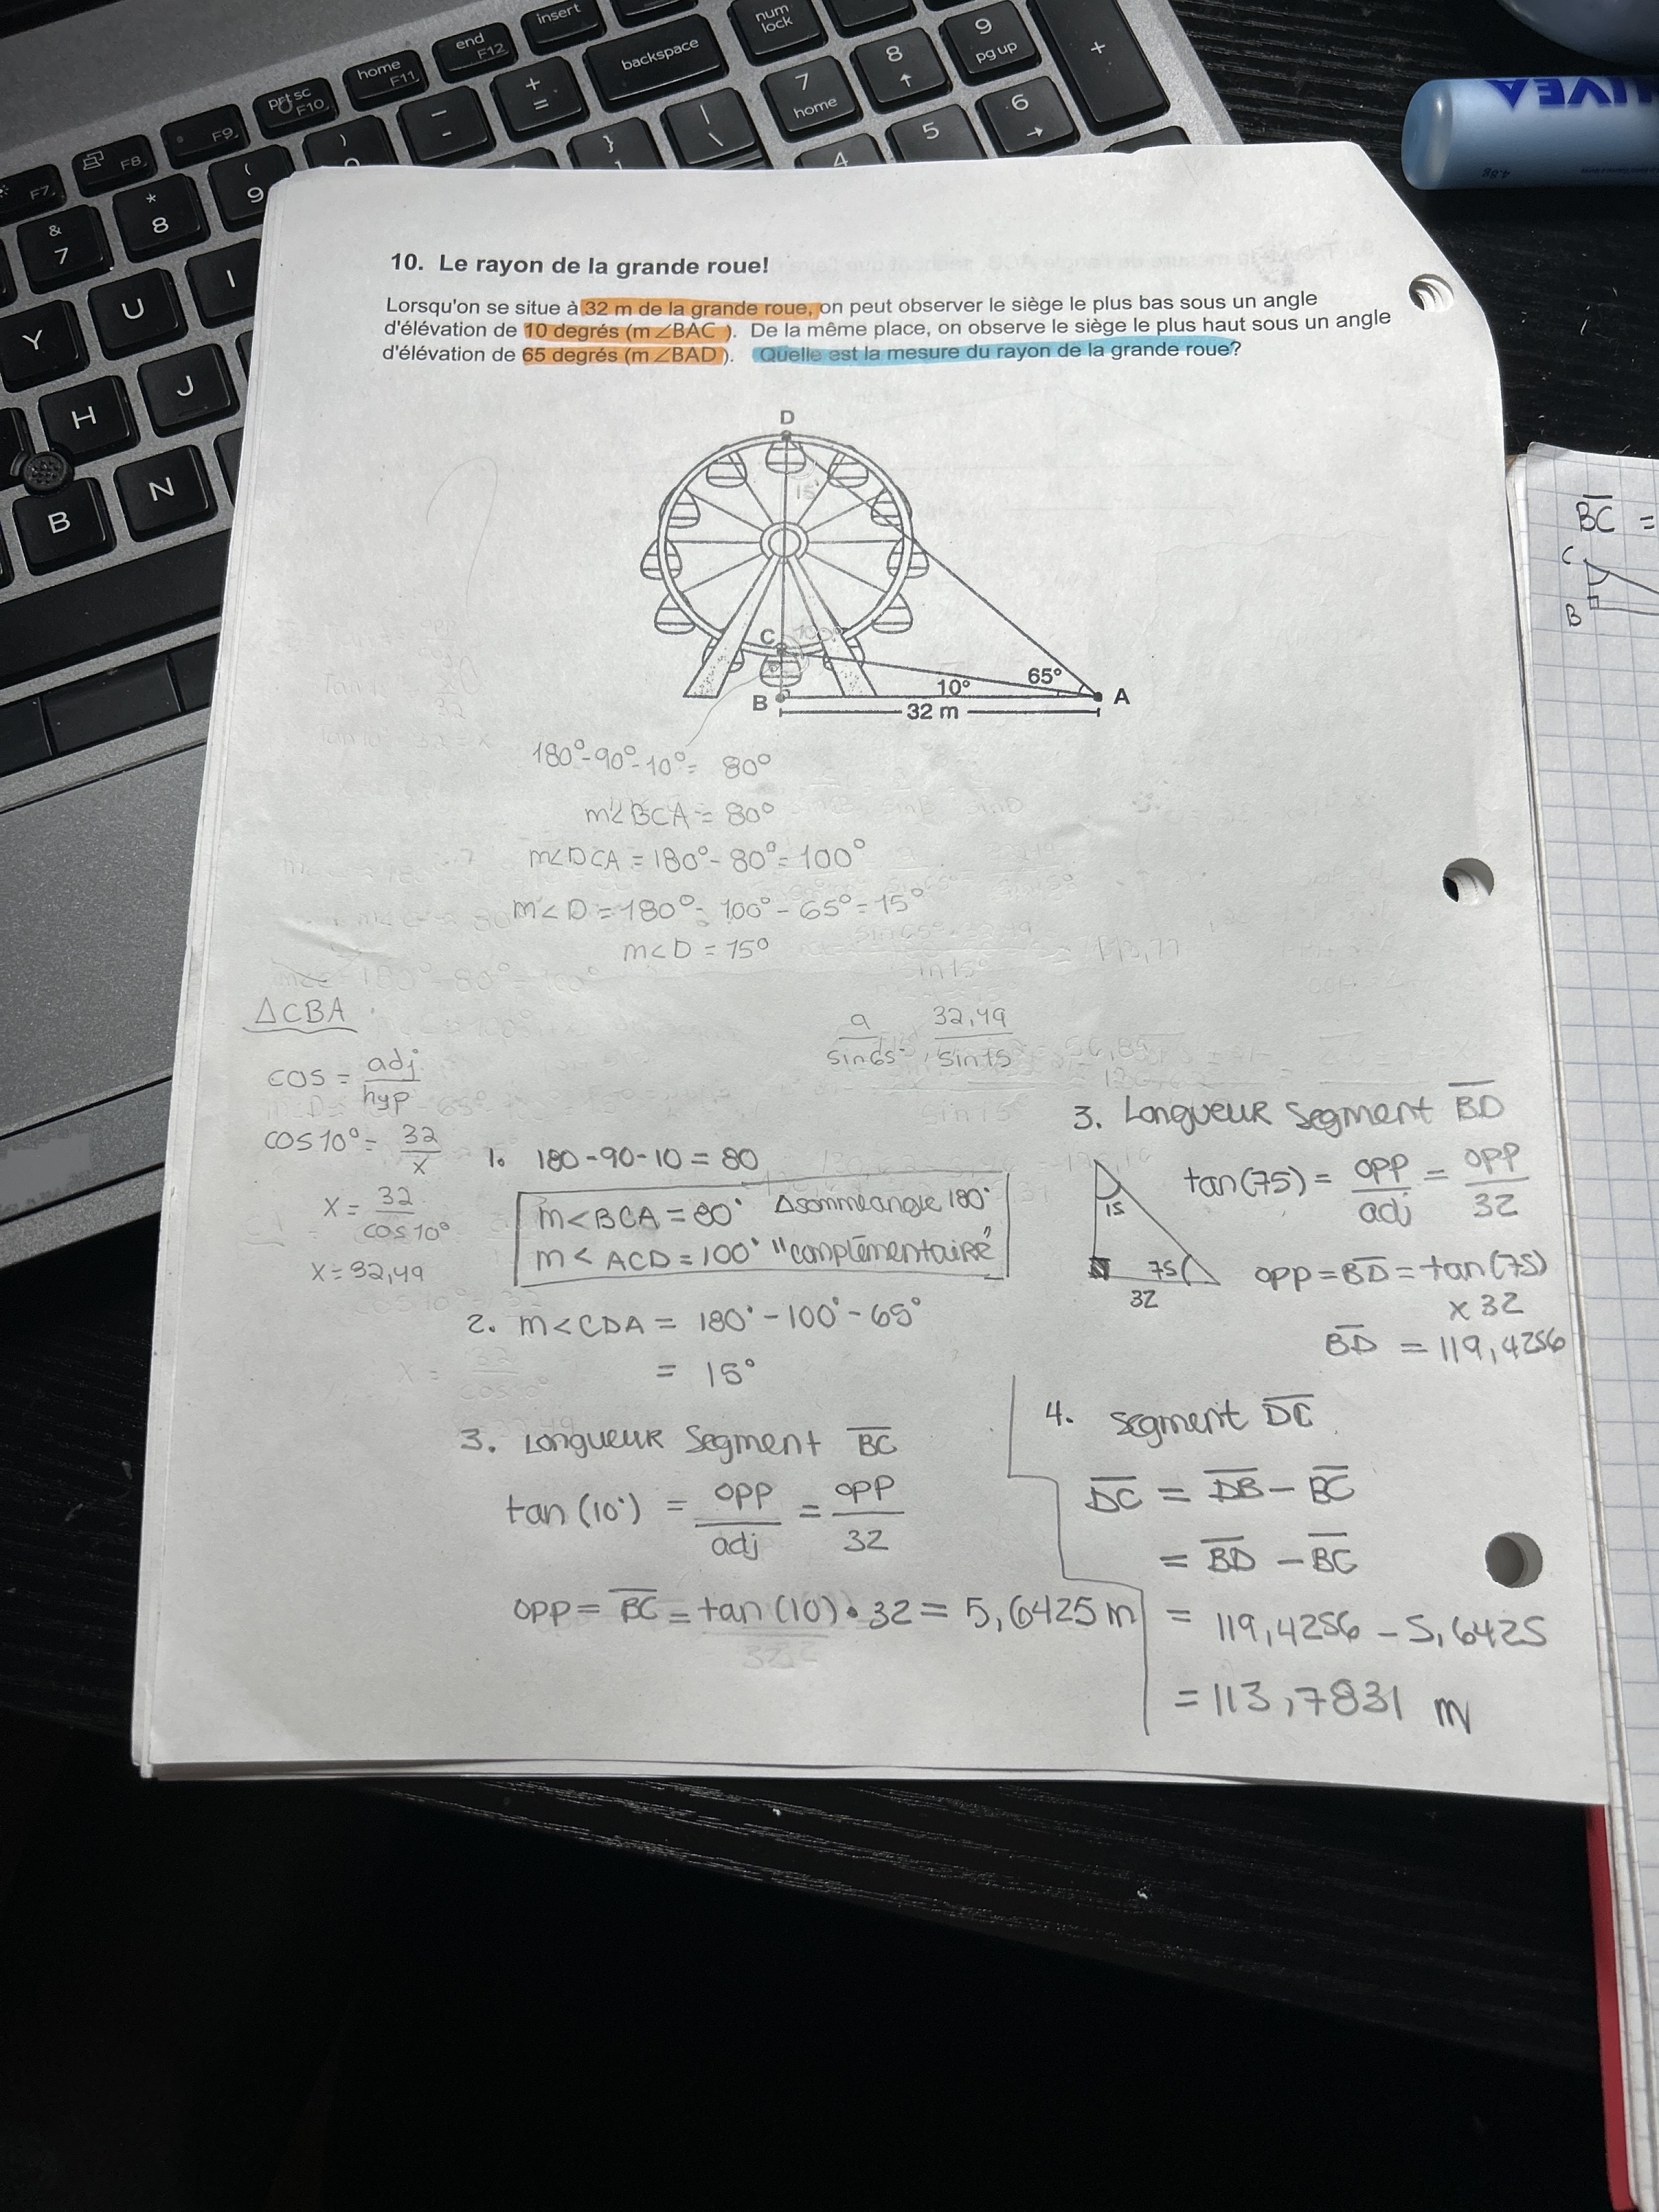 insert
num
lock
9
pg up
+
end
F12
backspace
8
home
F11
+
=
7
home
6
prt sc
F10
_
-
|
\
5
F9
)
}
4
F8
(
9
F7
*
8
&
7
I
U
Y
J
H
N
B
NIVEA
4.8g
10. Le rayon de la grande roue!
Lorsqu'on se situe à 32 m de la grande roue, on peut observer le siège le plus bas sous un angle
d'élévation de 10 degrés (m ∠BAC ). De la même place, on observe le siège le plus haut sous un angle
d'élévation de 65 degrés (m ∠BAD ). Quelle est la mesure du rayon de la grande roue?
D
15°
C
100°
65°
10°
B
A
32 m
180°-90°-10°= 80°
m∠BCA = 80°
m∠DCA = 180°- 80°= 100°
m∠D = 180°- 100° - 65° = 15°
m∠D = 15°
ΔCBA
cos = adj/hyp
cos10° = 32/x
x = 32/cos10°
x = 32,49
a/sin65 , 32,49/sin15
1. 180-90-10 = 80
m<BCA = 80° Δsomme angle 180°
m< ACD = 100° "complémentaire"
2. m<CDA = 180° - 100° - 65°
= 15°
3. Longueur Segment BC
tan (10°) = opp/adj = opp/32
opp = BC = tan (10) • 32 = 5,6425 m
3. Longueur Segment BD
15
75
32
tan(75) = opp/adj = opp/32
opp = BD = tan(75)
x 32
BD = 119,4256
4. segment DC
DC = DB - BC
= BD - BC
= 119,4256 - 5,6425
= 113,7831 m
BC =
C
B